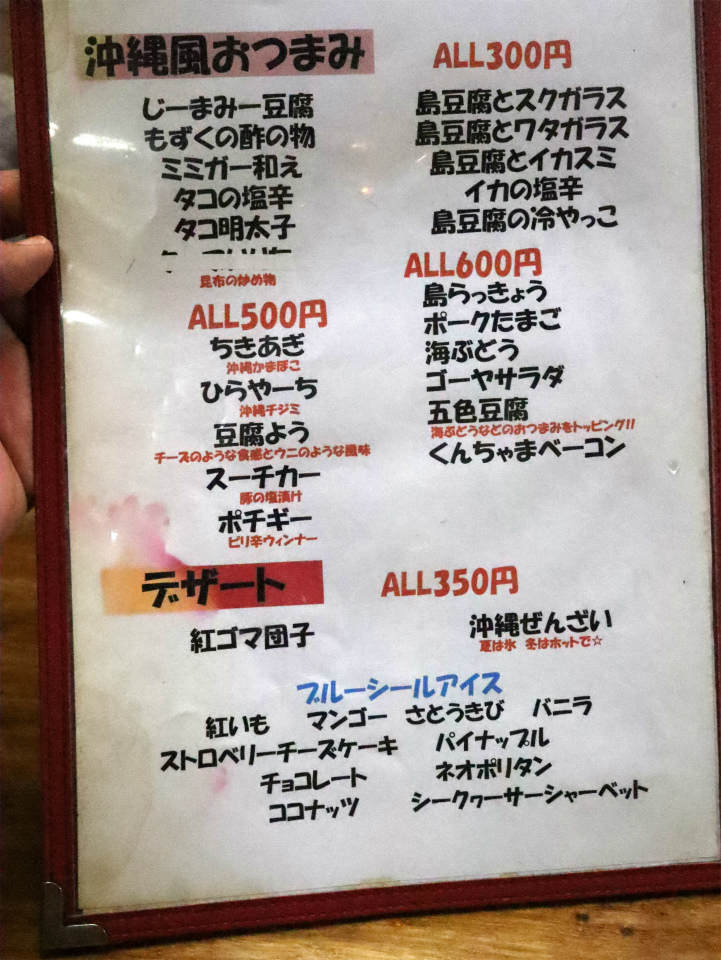 沖縄風おつまみ
ALL300円
じーまみー豆腐
もずくの酢の物
ミミガー和え
タコの塩辛
タコ明太子
昆布の炒め物
島豆腐とスクガラス
島豆腐とワタガラス
島豆腐とイカスミ
イカの塩辛
島豆腐の冷やっこ
ALL500円
ちきあぎ
沖縄かまぼこ
ひらやーち
沖縄チジミ
豆腐よう
チーズのような食感とウニのような風味
スーチカー
豚の塩漬け
ポチギー
ピリ辛ウィンナー
ALL600円
島らっきょう
ポークたまご
海ぶどう
ゴーヤサラダ
五色豆腐
海ぶどうなどのおつまみをトッピング!!
くんちゃまベーコン
デザート
ALL350円
紅ゴマ団子
沖縄ぜんざい
夏は氷 冬はホットで☆
ブルーシールアイス
紅いも マンゴー さとうきび バニラ
ストロベリーチーズケーキ パイナップル
チョコレート ネオポリタン
ココナッツ シークヮーサーシャーベット